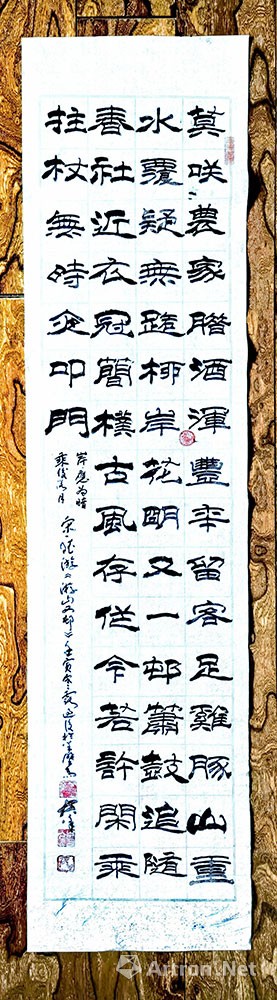 莫咲農家腊酒渾豐年留客足雞豚山重
水覆疑無路柳岸花明又一邨簫鼓追隨
春社近衣冠簡樸古風存從今若許閑乘
拄杖無時夜叩門
岸應為暗
乘後月
宋·陸游《游山西邨》壬寅冬
Artron.Net